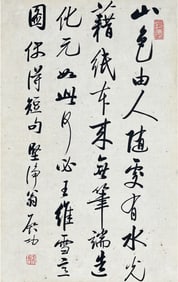 山色由人随處有水光
藉紙本来無筆端造
化元如此何必王維雪意
圖 偶得短句 堅淨翁启功